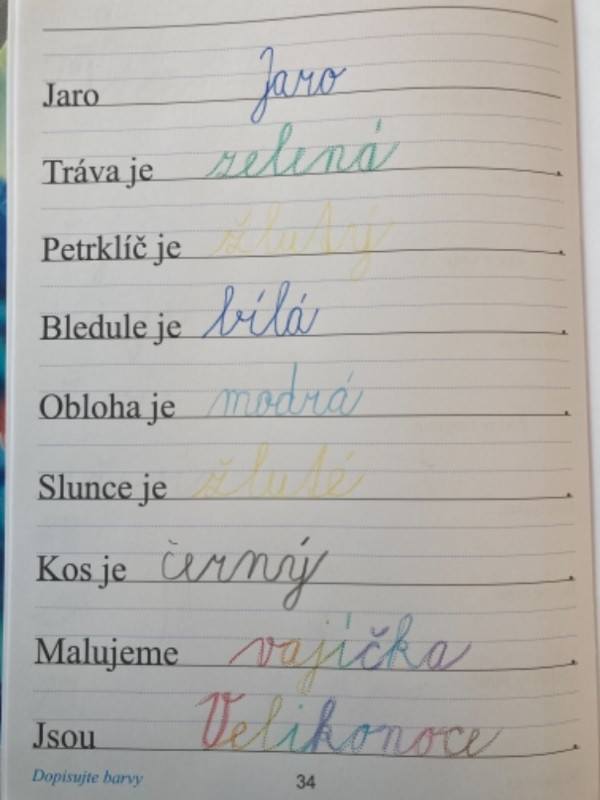 Jaro Jaro
Tráva je zelená.
Petrklíč je žlutý.
Bledule je bílá.
Obloha je modrá.
Slunce je žluté.
Kos je černý.
Malujeme vajíčka.
Jsou Velikonoce.
Dopisujte barvy 34